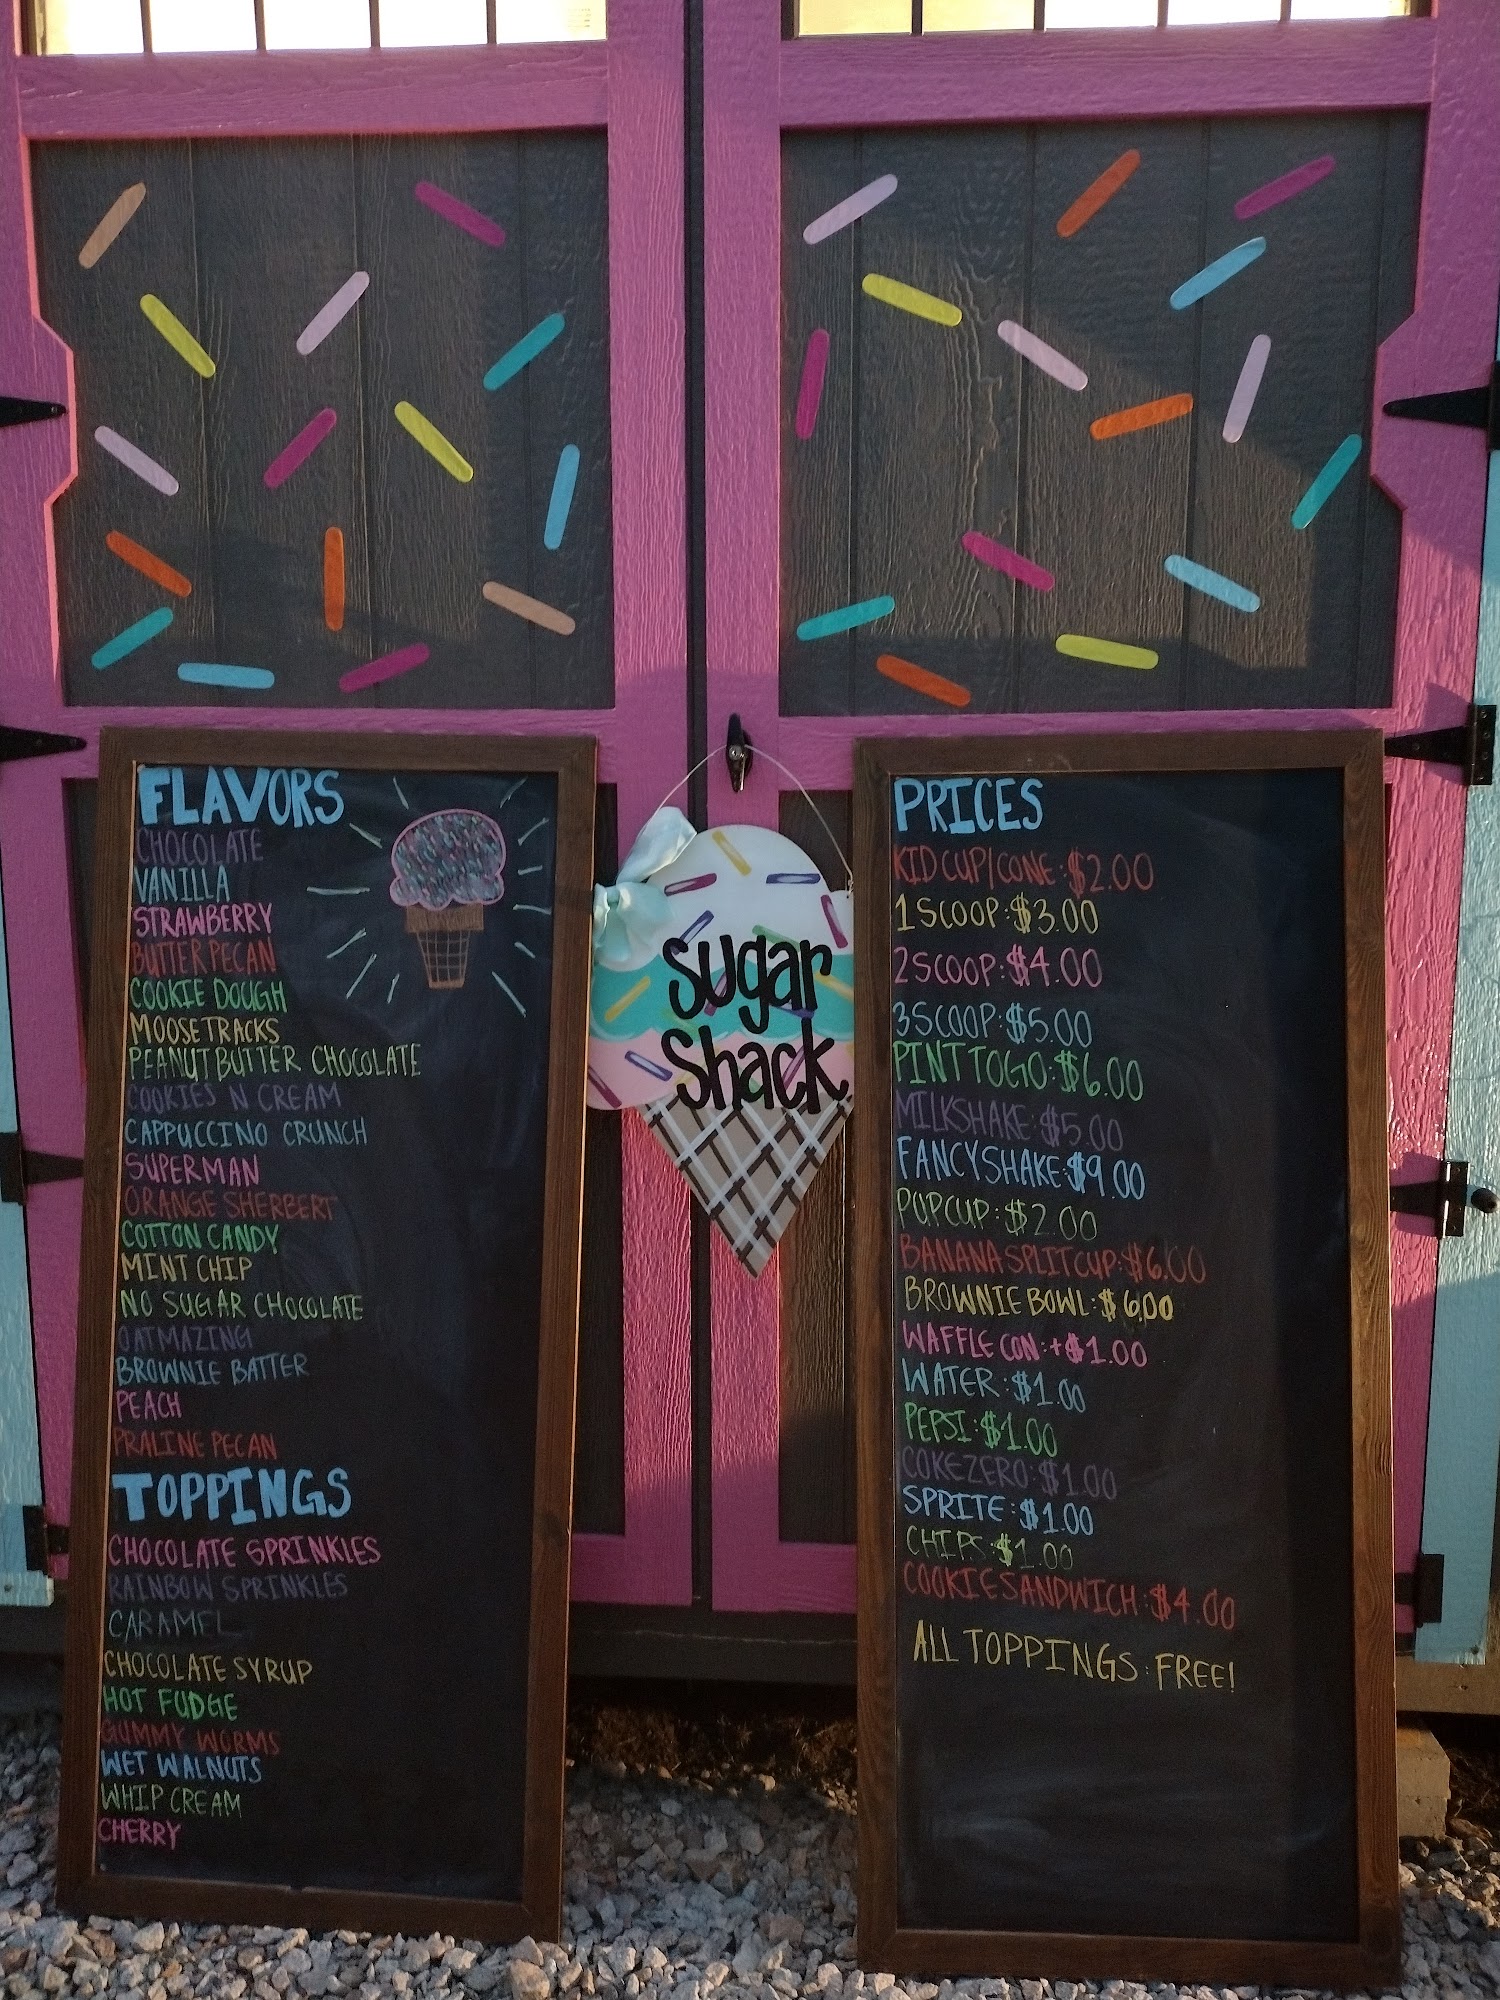 FLAVORS
CHOCOLATE
VANILLA
STRAWBERRY
BUTTER PECAN
COOKIE DOUGH
MOOSETRACKS
PEANUT BUTTER CHOCOLATE
COOKIES N CREAM
CAPPUCCINO CRUNCH
SUPERMAN
ORANGE SHERBERT
COTTON CANDY
MINT CHIP
NO SUGAR CHOCOLATE
OATMAZING
BROWNIE BATTER
PEACH
PRALINE PECAN
TOPPINGS
CHOCOLATE SPRINKLES
RAINBOW SPRINKLES
CARAMEL
CHOCOLATE SYRUP
HOT FUDGE
GUMMY WORMS
WET WALNUTS
WHIP CREAM
CHERRY
Sugar
Shack
PRICES
KID CUP/CONE: $2.00
1 SCOOP: $3.00
2 SCOOP: $4.00
3 SCOOP: $5.00
PINT TO GO: $6.00
MILKSHAKE: $5.00
FANCY SHAKE: $9.00
POP CUP: $2.00
BANANA SPLIT CUP: $6.00
BROWNIE BOWL: $6.00
WAFFLE CON: +$1.00
WATER: $1.00
PEPSI: $1.00
COKE ZERO: $1.00
SPRITE: $1.00
CHIPS: $1.00
COOKIE SANDWICH: $4.00
ALL TOPPINGS: FREE!